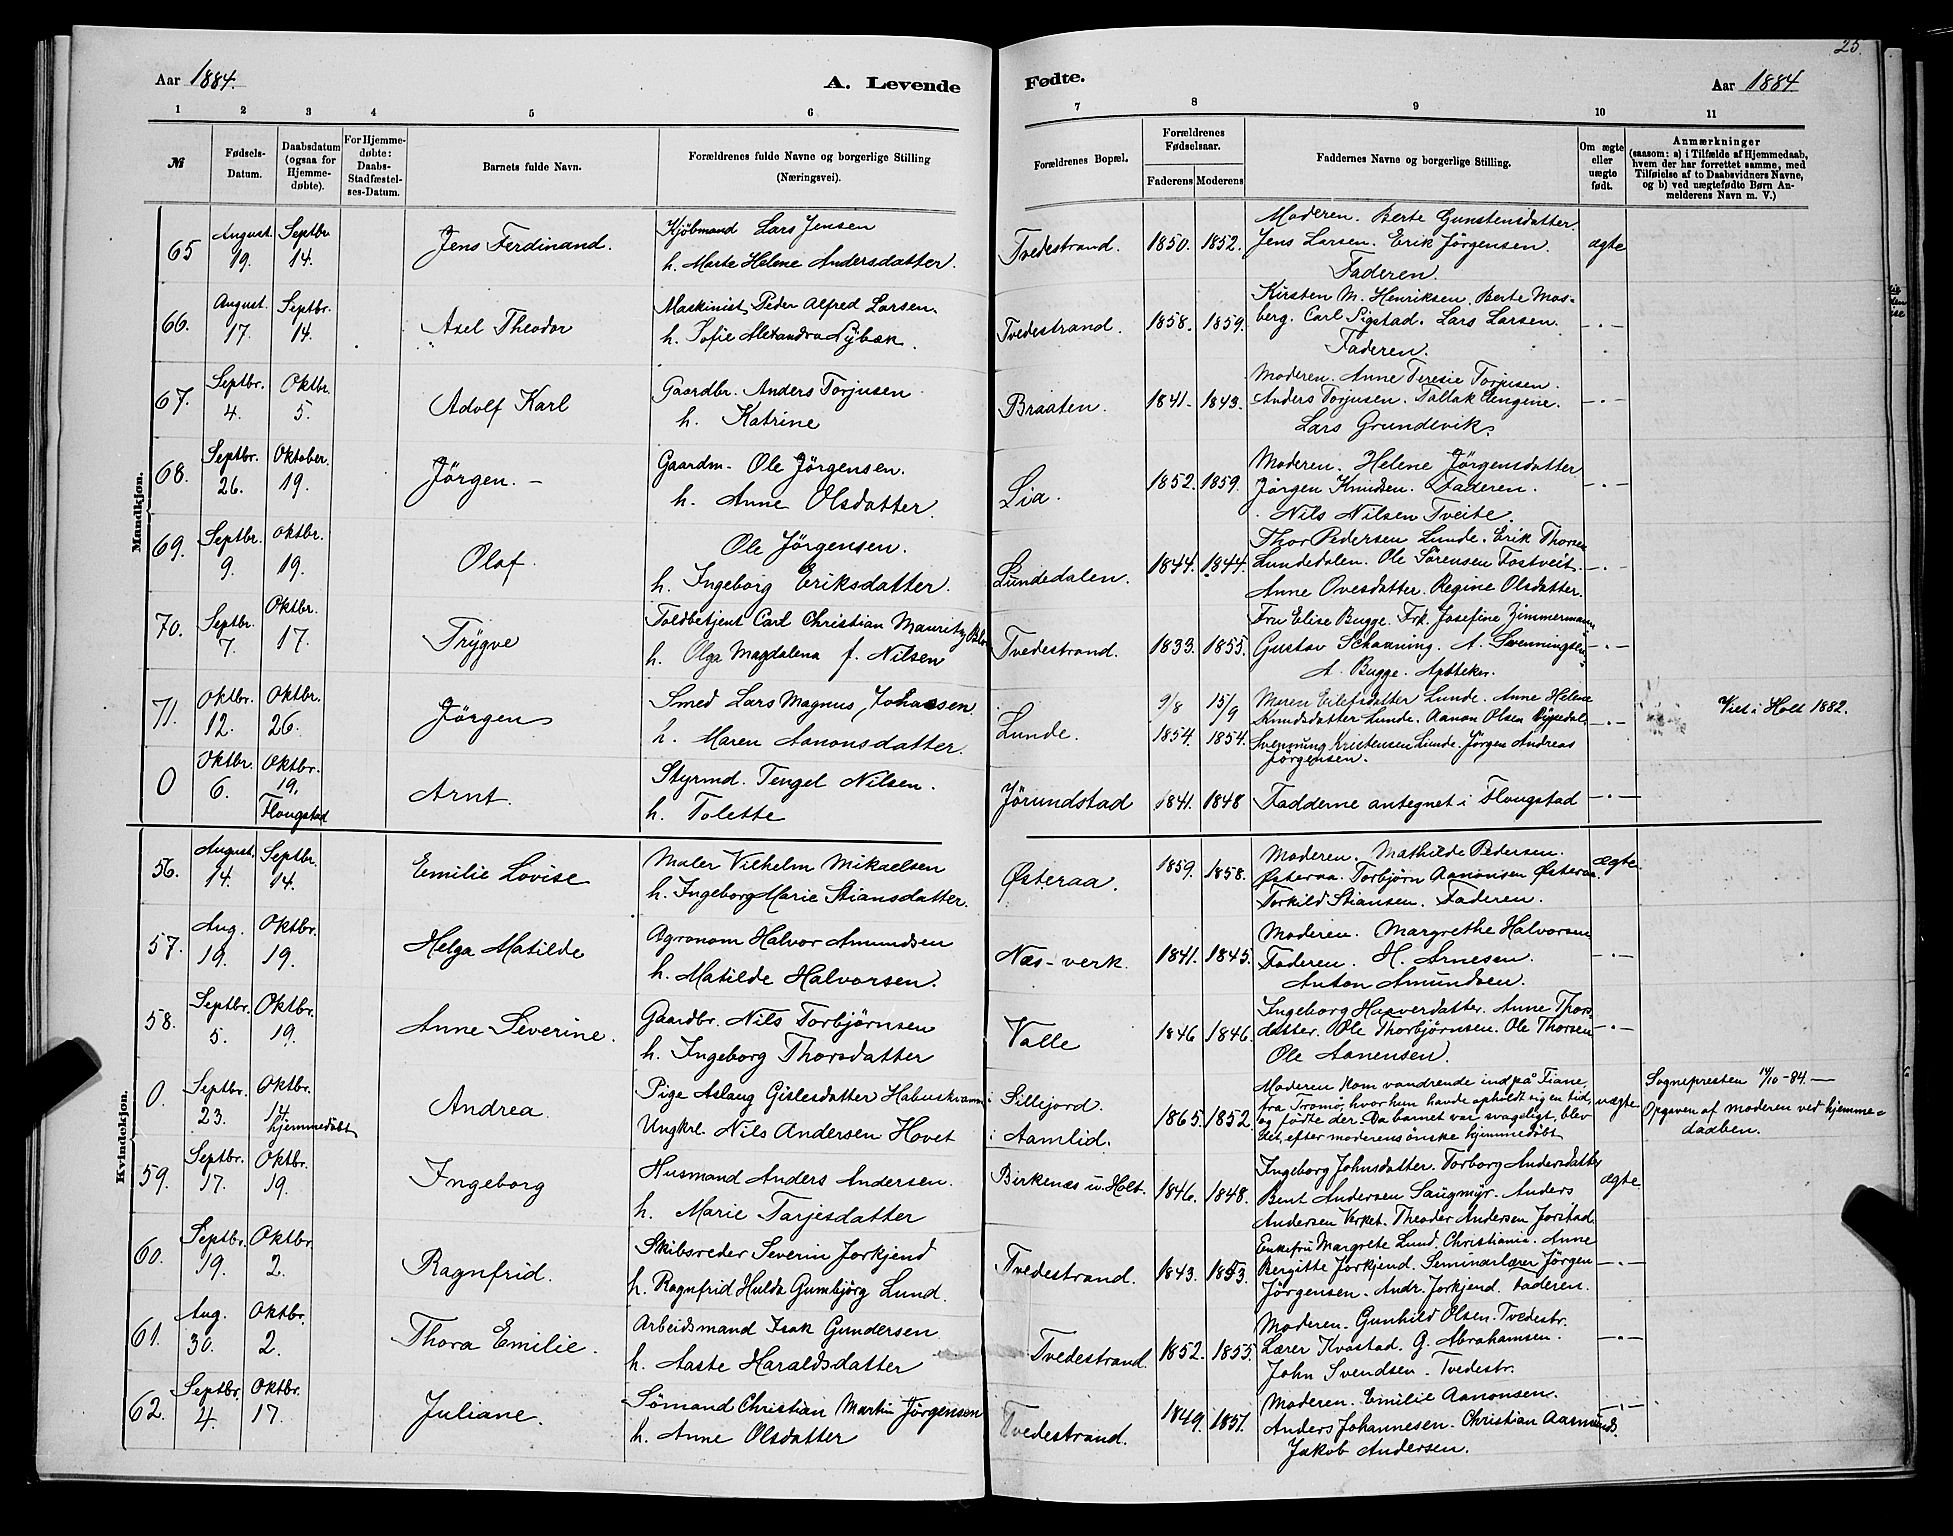 25.
Aar 1884. A. Levende Fødte. Aar 1884
1 2 3 4 5 6 7 8 9 10 11
№
Fødsels-Datum.
Daabsdatum (ogsaa for Hjemme-døbte).
For Hjemme-døbte: Daabs-Stadfæstel-ses-Datum.
Barnets fulde Navn.
Forældrenes fulde Navne og borgerlige Stilling (Næringsvei).
Forældrenes Bopæl.
Forældrenes Fødselsaar.
Faderens Moderens
Faddernes Navne og borgerlige Stilling.
Om ægte eller uægte født.
Anmærkninger
(saasom: a) i Tilfælde af Hjemmedaab, hvem der har forrettet samme, med Tilføielse af to Daabsvidners Navne, og b) ved uægtefødte Børn An-melderens Navn m. V.)
Mandkjøn.
65 August. 19. Septbr 14. Jens Ferdinand.
Kjøbmand Lars Jensen
h. Marte Helene Andersdatter.
Tvedestrand. 1850. 1852.
Moderen. Berte Gunstensdatter
Jens Larsen. Erik Jörgensen
Faderen
ægte
66. August. 17. Septbr. 14. Axel Theodor
Maskinist Peder Alfred Larsen.
h. Sofie Alexandra Nybæk.
Tvedestrand. 1858. 1859.
Kirsten M. Henriksen. Berte Mos-
berg. Carl Sigstad. Lars Larsen.
Faderen.
—.—
67. Septbr. 4. Oktbr. 5. Adolf Karl
Gaardbr. Anders Torjusen
h. Katrine
Braaten. 1841. 1843.
Moderen. Anne Teresie Torjusen.
Anders Torjusen. Tallak Eengene.
Lars Grundevik.
—.—
68. Septbr. 26. Oktober. 19. Jörgen. –
Gaardm. Ole Jörgensen.
h. Anne Olsdatter.
Lia. 1852. 1859.
Moderen. Helene Jörgensdatter
Jörgen Knudsen. Faderen.
Nils Nilsen Tveite.
—.—
69. Septbr. 9. Oktbr. 19. Olaf.
Ole Jörgensen.
h. Ingeborg Eriksdatter.
Lundedalen. 1844. 1844.
Thor Pedersen Lunde. Erik Thorsen
Lundedalen. Ole Sörensen Fostveit
Anne Ovesdatter. Regine Olsdatter.
—.—
70. Septbr. 7. Oktbr. 17. Trygve
Toldbetjent Carl Christian Mauritz
h. Olga Magdalena f. Nilsen
Tvedestrand. 1833. 1855.
Fru Elise Bugge. Frk. Josefine Zimmermann
Gustav Schaaning. A. Svenningsen
A. Bugge. Apotheker.
—.—
71. Oktbr. 12. Oktbr. 26. Jörgen
Smed Lars Magnus Johansen
h. Maren Aanonsdatter.
Lunde. 9/8 1854. 15/9 1854.
Maren Eilefsdatter Lunde. Anne Helene
Knudsdatter Lunde. Aanon Olsen
Svennung Kristensen Lunde. Jörgen Andreas
Jörgensen.
—.—
Viet i Holt 1882.
0 Oktbr. 6. Oktbr. 19. Flougstad Arnt.
Styrmd. Tengel Nilsen.
h. Tolette
Jörundstad 1841. 1848
Fadderne antegnet i Flougstad
—.—
Kvindekjøn.
56. August. 14. Septbr. 14. Emilie Lovise
Maler Vilhelm Mikaelsen
h. Ingeborg Marie Stiansdatter.
Østeraa. 1859. 1858.
Moderen. Mathilde Pedersen.
Østeraa. Torbjørn Aanonsen Østeraa.
Torkild Stiansen. Faderen.
ægte
57. Aug. 19. Oktbr. 19. Helga Matilde
Agronom Halvor Amundsen
h. Matilde Halvorsen.
Næs-verk. 1841. 1845.
Moderen. Margrethe Halvorsen
Faderen. H. Arnesen.
Anton Amundsen.
—.—
58. Septbr. 5. Oktbr. 19. Anne Severine.
Gaardbr. Nils Torbjørnsen
h. Ingeborg Thorsdatter
Valle 1846 1846.
Ingeborg Haaversdatter. Anne Thors-
datter. Ole Thorbjørnsen. Ole Thorsen
Ole Aanensen.
—.—
0. Septbr. 23. Oktbr. 14. hjemmedöbt Andrea.
Pige Aslaug Gislesdatter
Ungkrl. Nils Andersen Hovet
i Sillejord.
i Aamlid. 1865. 1852.
Moderen kom vandrende ind på Tiane,
fra Tromö, hvor hun havde opholdt sig en tid
og fødte der. Da barnet var svageligt, blev
det efter moderens önske hjemmedöbt
uægte
Sognepresten 14/10-84. —
Opgiven af moderen ved hjemme-
daaben.
59. Septbr. 17. Oktbr. 19. Ingeborg
Husmand Anders Andersen.
h. Marie Tarjesdatter
Birkenæs u. Holt. 1846. 1848.
Ingeborg Johnsdatter. Torborg Andersdatter
Bent Andersen Saugmyr. Anders
Andersen Verket. Theodor Andersen Jorstad.
ægte
60. Septbr. 19. Oktbr. 2. Ragnfrid.
Skibsreder Severin Jorkjend
h. Ragnfrid Hulda Gumbjörg Lund.
Tvedestrand. 1843. 1853.
Enkefru Margrete Lund. Christiania. Anne
Bergitte Jorkjend. Seminarlærer Jörgen
Jörgensen. Andr. Jorkjend. Faderen.
—.—
61. Aug. 30. Oktbr. 2. Thora Emilie.
Arbeidsmand Isak Gundersen
h. Aaste Haraldsdatter
Tvedestrand. 1852. 1855.
Moderen. Gunhild Olsen. Tvedestr.
Lærer Kvastad. G. Abrahamsen.
John Svendsen. Tvedestr.
—.—
62. Septbr. 4. Oktbr. 17. Juliane.
Sömand Christian Martin Jörgensen
h. Anne Olsdatter
Tvedestrand. 1849. 1851.
Moderen. Emilie Aanonsen.
Anders Johannesen. Christian Aasmunds.
Jakob Andersen.
—.—